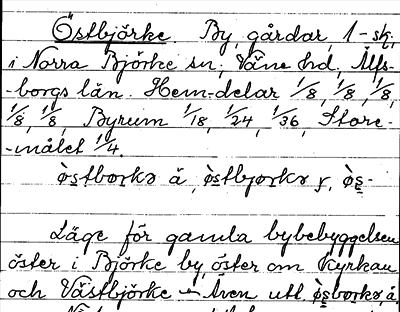 Östbjörke By, gårdar, 1-sk,
i Norra Björke sn, Väne hd, Älfs-
-borgs län. Hem-delar 1/8, 1/8, 1/8,
1/8, 1/8, Byrum 1/18, 1/24, 1/36, Store-
-målet 1/4.
ò̤stborkə å, ò̤stbjorkə y, ò̤s-
Läge för gamla bybebyggelsen
öster i Björke by, öster om Kyrkan
och Västbjörke – Även utt. ò̤sborkə, å